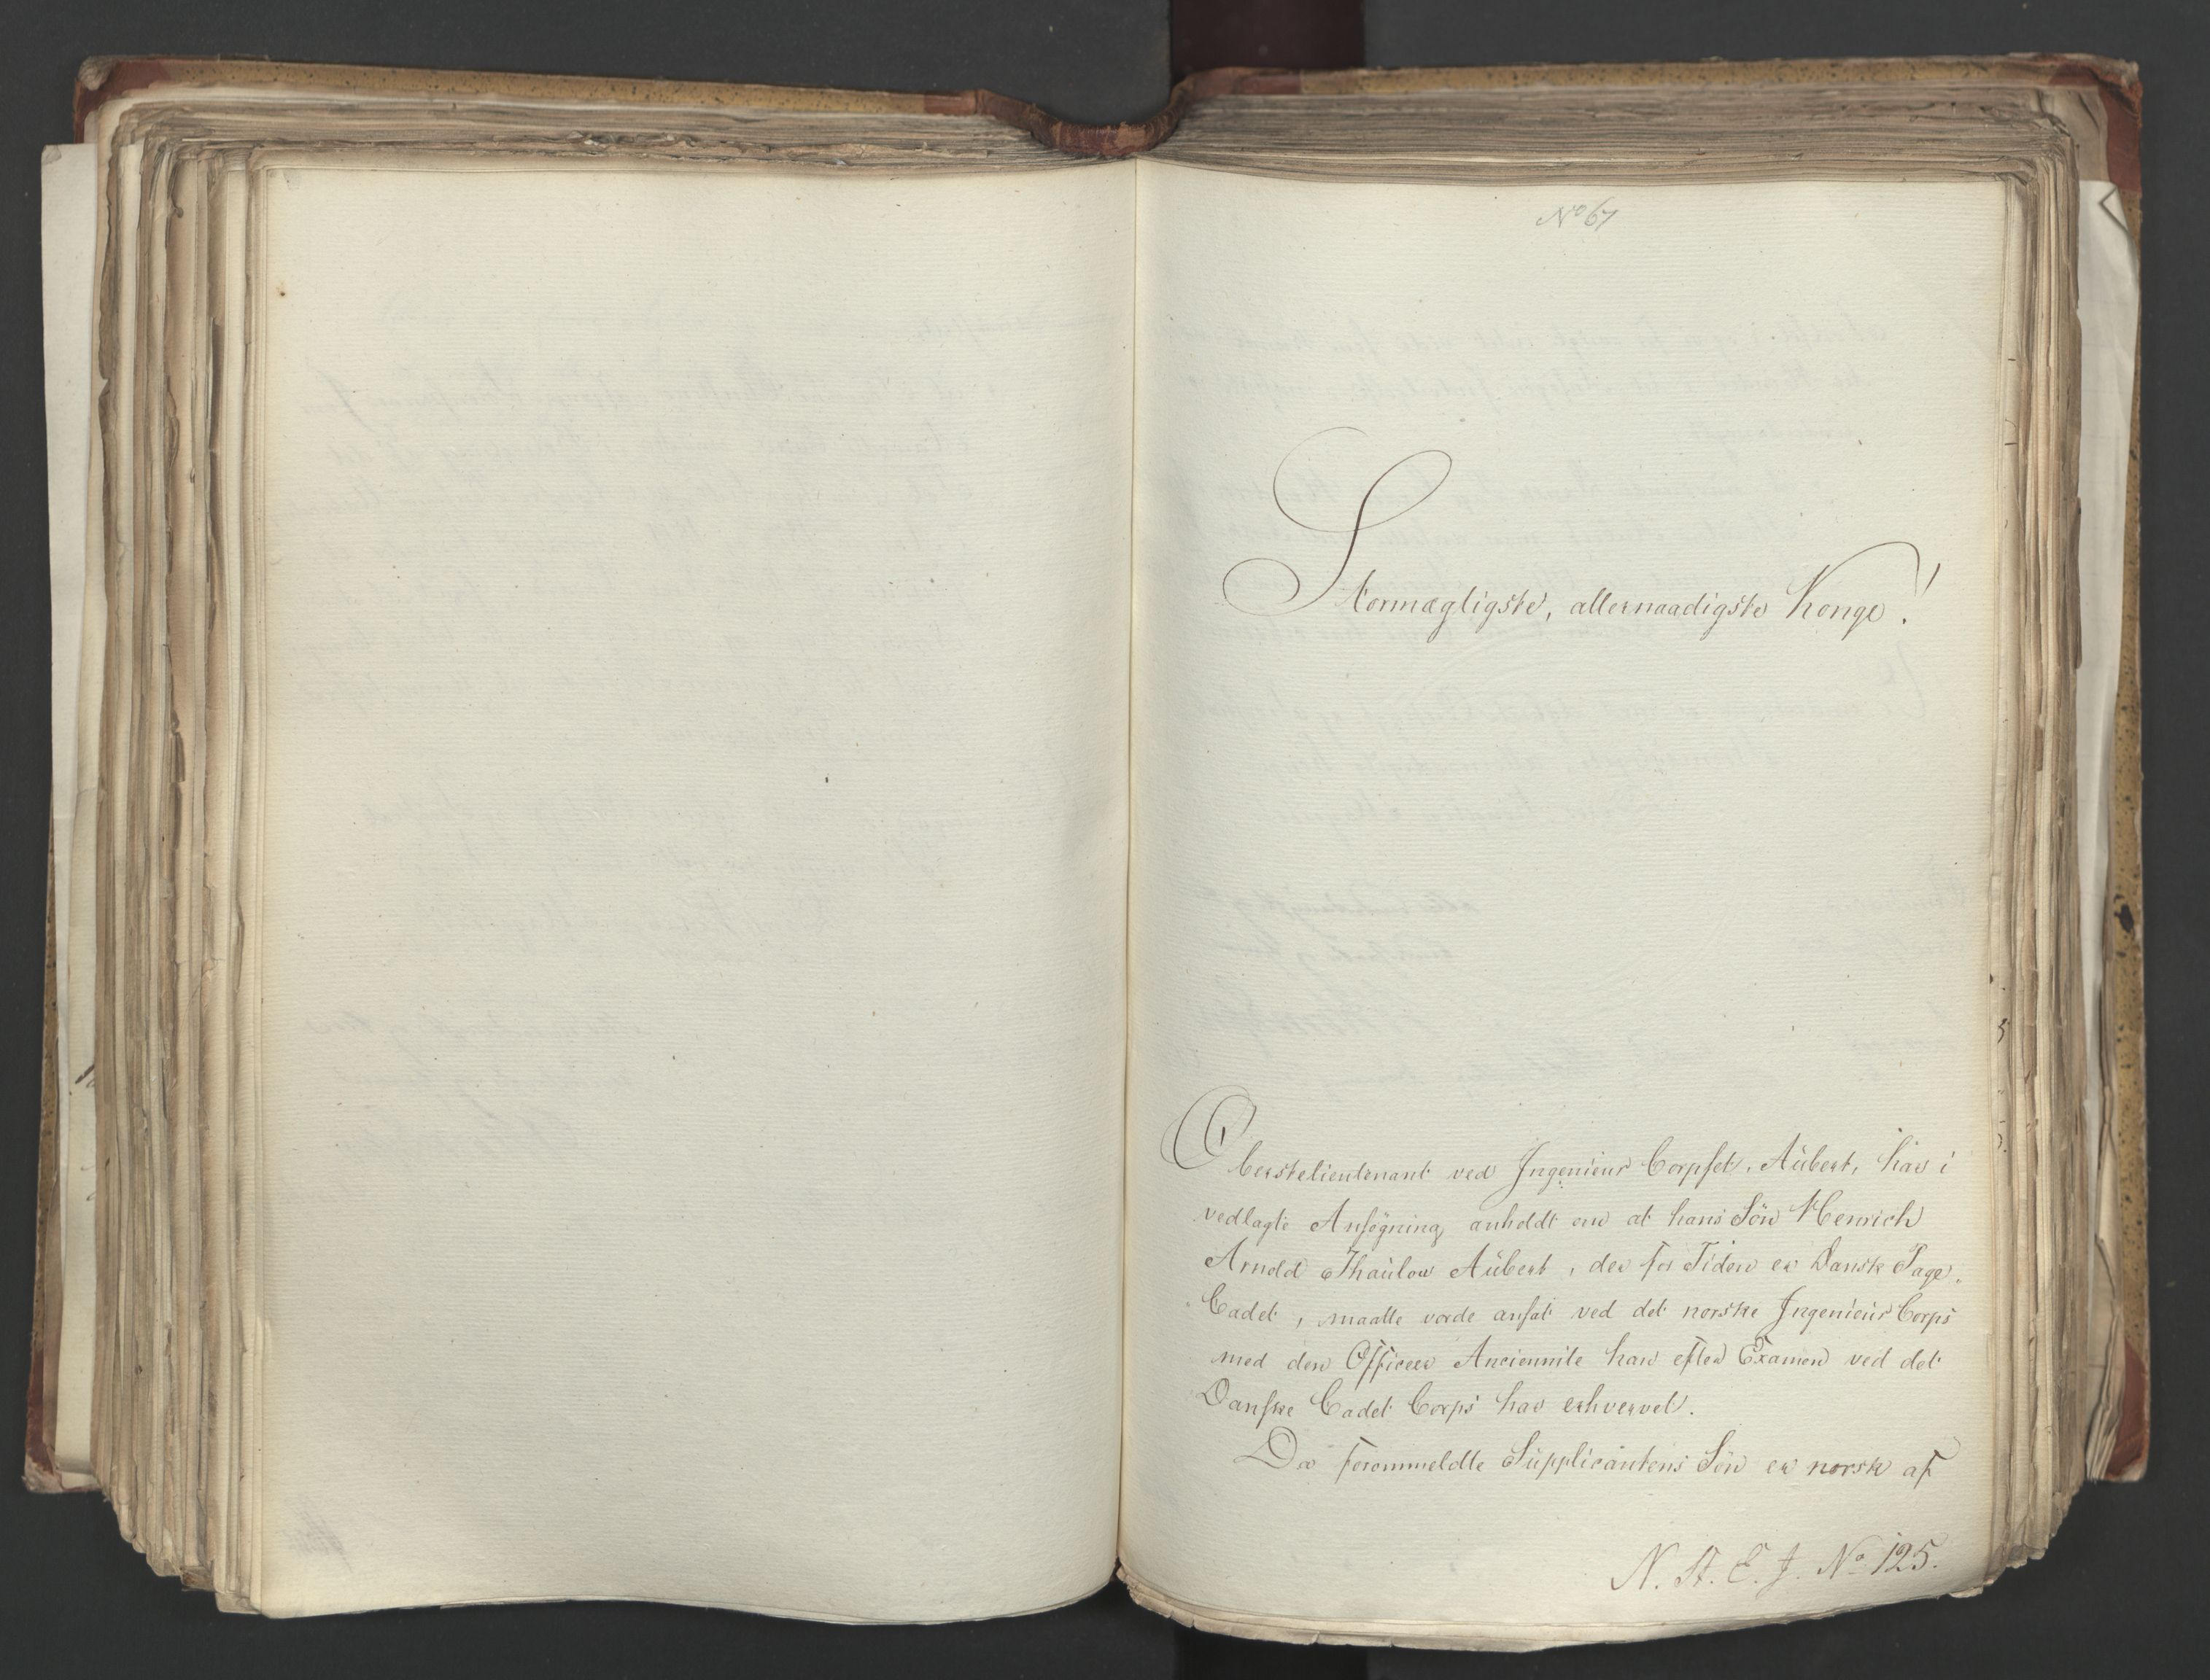 No 67
Stormægtigste, allernaadigste Konge!
Oberstelieutenant ved Ingenieur Corpset, Aubert, har i
vedlagte Ansögning anholdt om at hans Sön Henrich
Arnold Thaulow Aubert, der for Tiden er Dansk Page-
Cadet, maatte vorde ansat ved det norske Ingenieur Corps
med den Officeer Anciennite han efter Examen ved det
Danske Cadet Corps har erhvervet.
Da forommeldte Supplicantens Sön er norsk af
N. St. E. J. No 125.